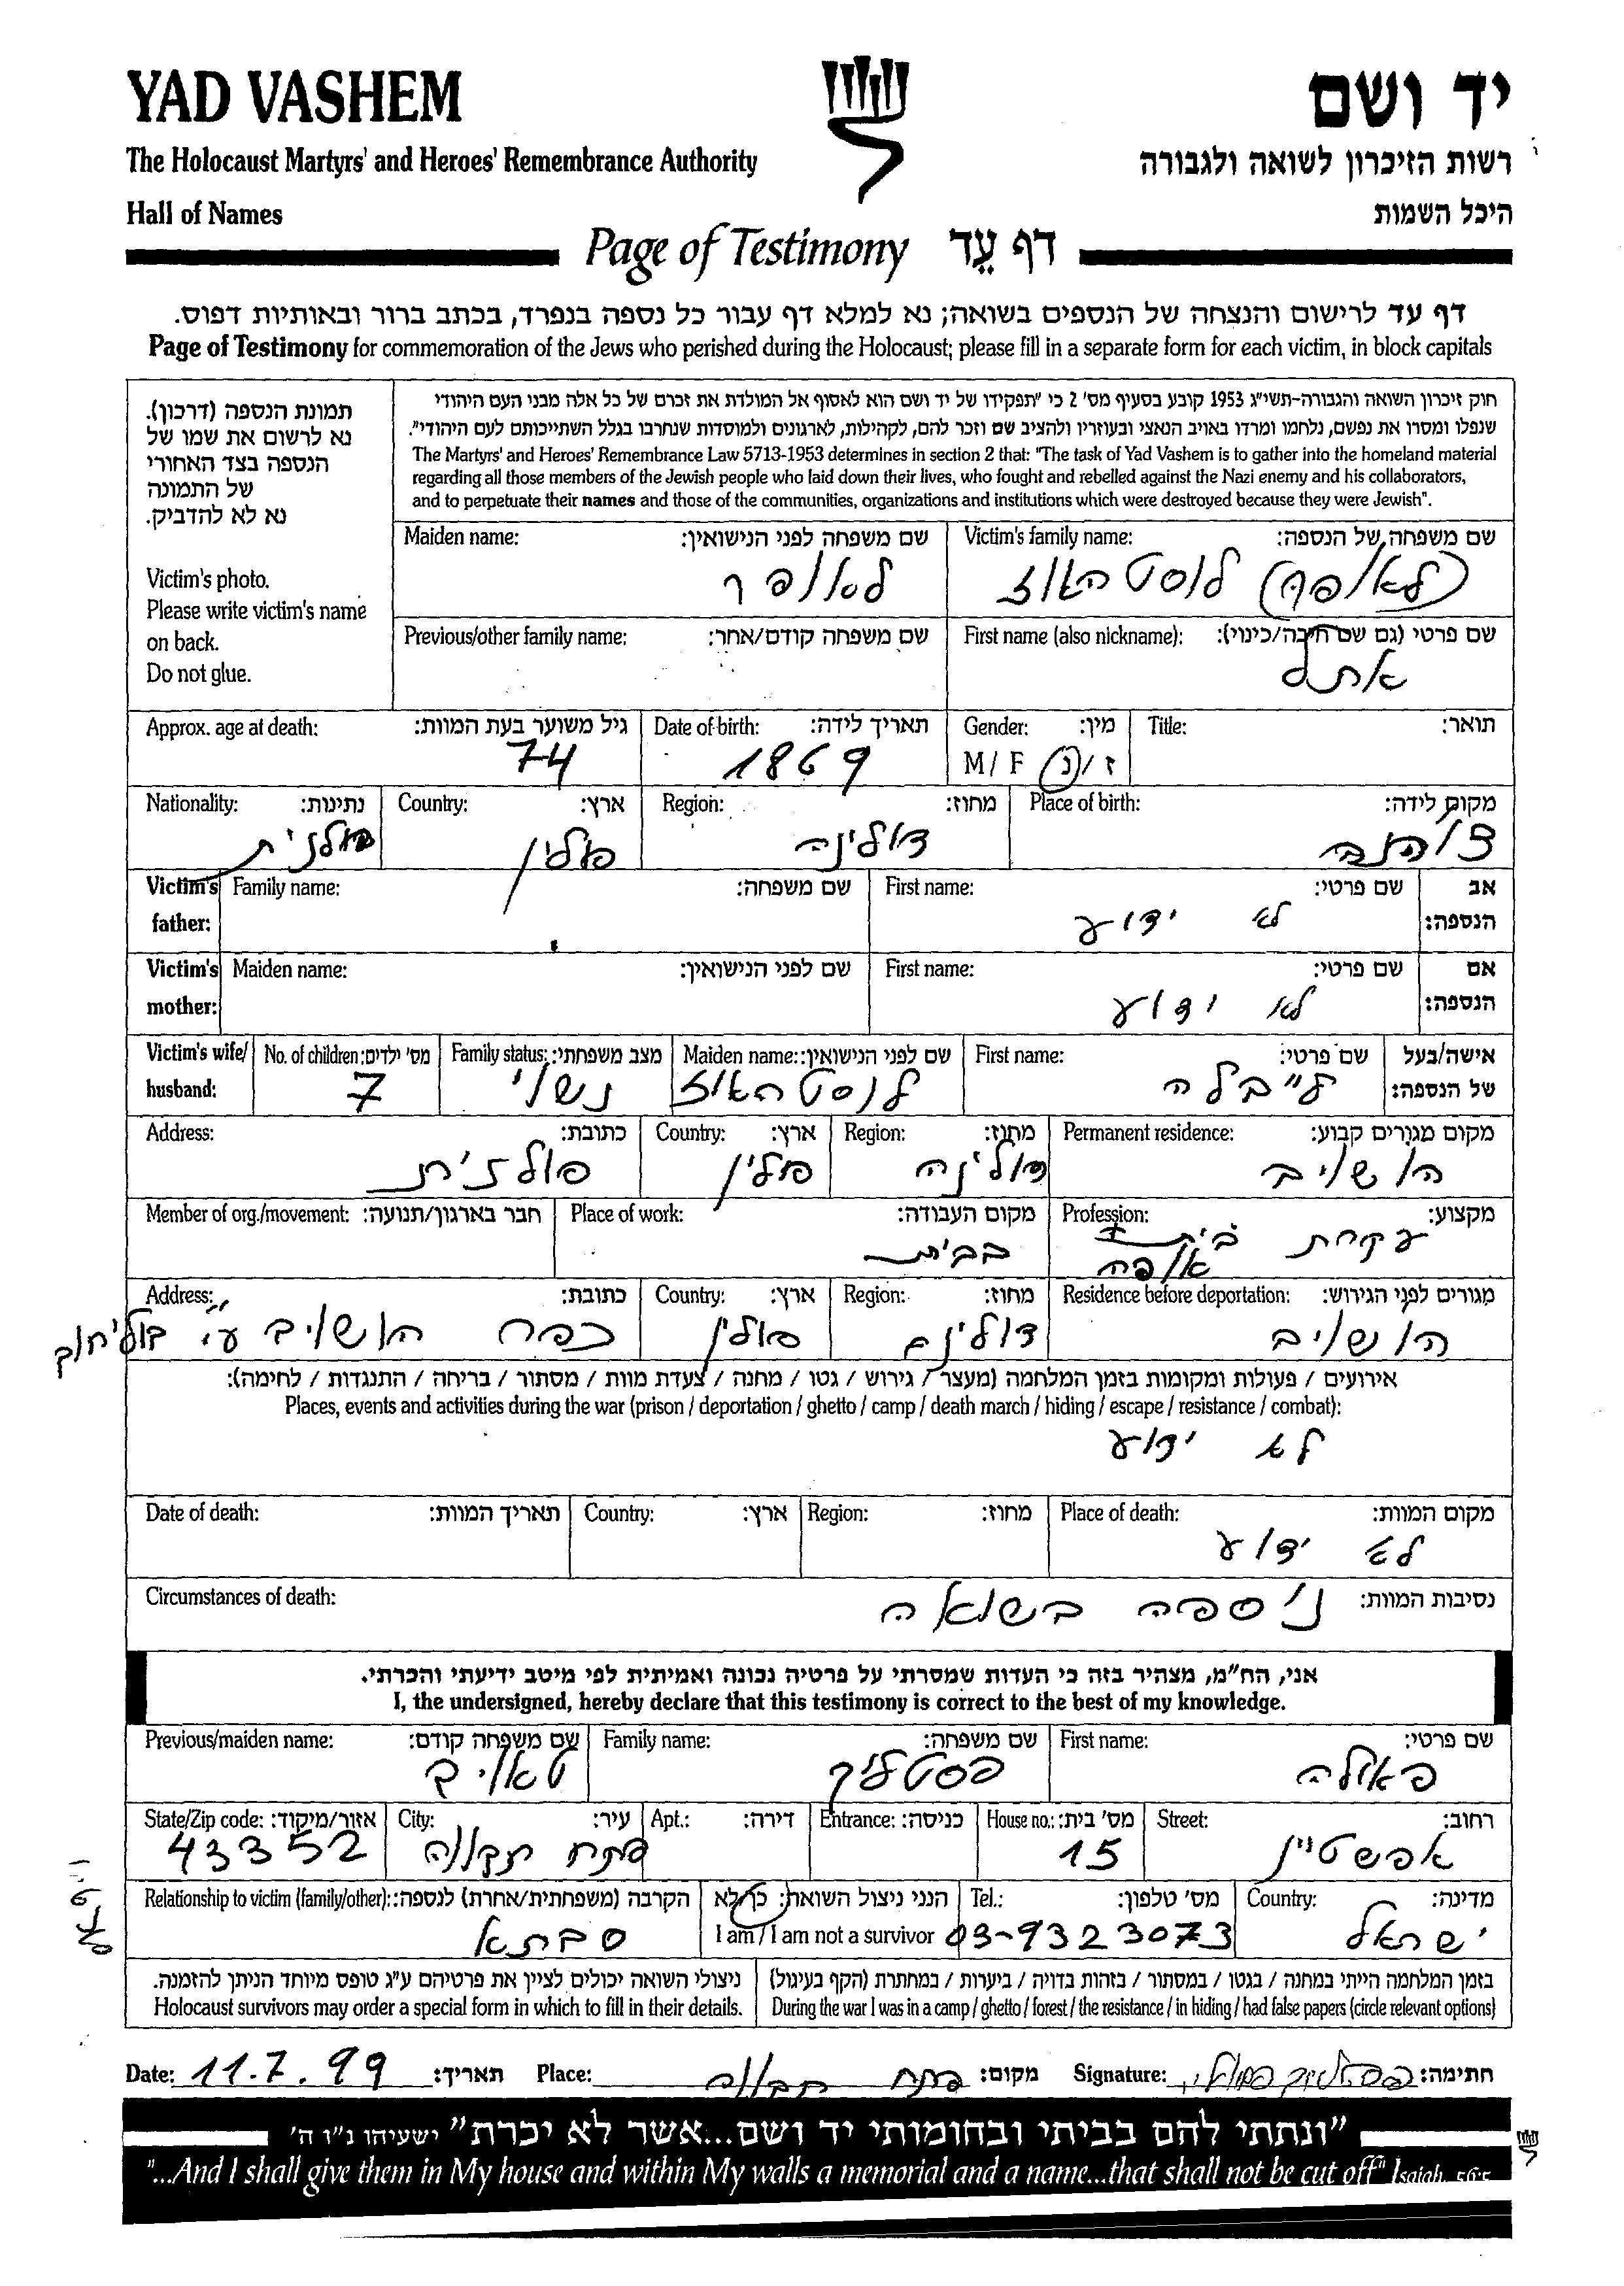 YAD VASHEM
יד ושם
The Holocaust Martyrs' and Heroes' Remembrance Authority
רשות הזיכרון לשואה ולגבורה
Hall of Names
היכל השמות
Page of Testimony דף עֵד
דף עד לרישום והנצחה של הנספים בשואה; נא למלא דף עבור כל נספה בנפרד, בכתב ברור ובאותיות דפוס.
Page of Testimony for commemoration of the Jews who perished during the Holocaust; please fill in a separate form for each victim, in block capitals
תמונת הנספה (דרכון).
נא לרשום את שמו של
הנספה בצד האחורי
של התמונה
נא לא להדביק.
Victim's photo.
Please write victim's name
on back.
Do not glue.
חוק זיכרון השואה והגבורה-תשי"ג 1953 קובע בסעיף מס' 2 כי "תפקידו של יד ושם הוא לאסוף אל המולדת את זכרם של כל אלה מבני העם היהודי
שנפלו ומסרו את נפשם, נלחמו ומרדו באויב הנאצי ובעוזריו ולהציב שם וזכר להם, לקהילות, לארגונים ולמוסדות שנחרבו בגלל השתייכותם לעם היהודי".
The Martyrs' and Heroes' Remembrance Law 5713-1953 determines in section 2 that: "The task of Yad Vashem is to gather into the homeland material
regarding all those members of the Jewish people who laid down their lives, who fought and rebelled against the Nazi enemy and his collaborators,
and to perpetuate their names and those of the communities, organizations and institutions which were destroyed because they were Jewish".
Victim's family name: שם משפחה של הנספה:
לוסטהאוז
Maiden name: שם משפחה לפני הנישואין:
לאופר
First name (also nickname): שם פרטי (גם שם חיבה/כינוי):
אתל
Previous/other family name: שם משפחה קודם/אחר:
Title: תואר:
Gender: מין:
M / F ז / נ
Date of birth: תאריך לידה:
1869
Approx. age at death: גיל משוער בעת המוות:
74
Place of birth: מקום לידה:
Region: מחוז:
דולינה
Country: ארץ:
פולין
Nationality: נתינות:
פולנית
Victim's father: אב הנספה:
First name: שם פרטי:
לא ידוע
Family name: שם משפחה:
Victim's mother: אם הנספה:
First name: שם פרטי:
לא ידוע
Maiden name: שם לפני הנישואין:
Victim's wife/ husband: אישה/בעל של הנספה:
First name: שם פרטי:
לייבלה
Maiden name: שם לפני הנישואין:
לוסטהאוז
Family status: מצב משפחתי:
נשוי
No. of children: מס' ילדים:
7
Permanent residence: מקום מגורים קבוע:
הושויב
Region: מחוז:
דולינה
Country: ארץ:
פולין
Address: כתובת:
פולנית
Profession: מקצוע:
עקרת בית +
אופה
Place of work: מקום העבודה:
בבית
Member of org./movement: חבר בארגון/תנועה:
Residence before deportation: מגורים לפני הגירוש:
הושויב
Region: מחוז:
דולינה
Country: ארץ:
פולין
Address: כתובת:
כפר הושויב ע"י
אירועים / פעולות ומקומות בזמן המלחמה (מעצר / גירוש / גטו / מחנה / צעדת מוות / מסתור / בריחה / התנגדות / לחימה):
Places, events and activities during the war (prison / deportation / ghetto / camp / death march / hiding / escape / resistance / combat):
לא ידוע
Place of death: מקום המוות:
לא ידוע
Region: מחוז:
Country: ארץ:
Date of death: תאריך המוות:
Circumstances of death: נסיבות המוות:
ניספה בשואה
אני, הח"מ, מצהיר בזה כי העדות שמסרתי על פרטיה נכונה ואמיתית לפי מיטב ידיעתי והכרתי.
I, the undersigned, hereby declare that this testimony is correct to the best of my knowledge.
First name: שם פרטי:
פאולה
Family name: שם משפחה:
פסטליק
Previous/maiden name: שם משפחה קודם:
Street: רחוב:
אפשטיין
House no.: מס' בית:
15
Entrance: כניסה:
Apt.: דירה:
City: עיר:
פתח תקווה
State/Zip code: אזור/מיקוד:
43352
Country: מדינה:
ישראל
Tel.: מס' טלפון:
03-9323073
הנני ניצול השואה: כן/לא
I am / I am not a survivor
Relationship to victim (family/other): הקרבה (משפחתית/אחרת) לנספה:
סבתא
בזמן המלחמה הייתי במחנה / בגטו / במסתור / בזהות בדויה / ביערות / במחתרת (הקף בעיגול)
During the war I was in a camp / ghetto / forest / the resistance / in hiding / had false papers (circle relevant options)
ניצולי השואה יכולים לציין את פרטיהם ע"ג טופס מיוחד הניתן להזמנה.
Holocaust survivors may order a special form in which to fill in their details.
Date: 11.7.99 תאריך: Place: פתח תקווה מקום: Signature: חתימה:
"ונתתי להם בביתי ובחומותי יד ושם...אשר לא יכרת" ישעיהו נ"ו ה'
"...And I shall give them in My house and within My walls a memorial and a name...that shall not be cut off" Isaiah, 56:5